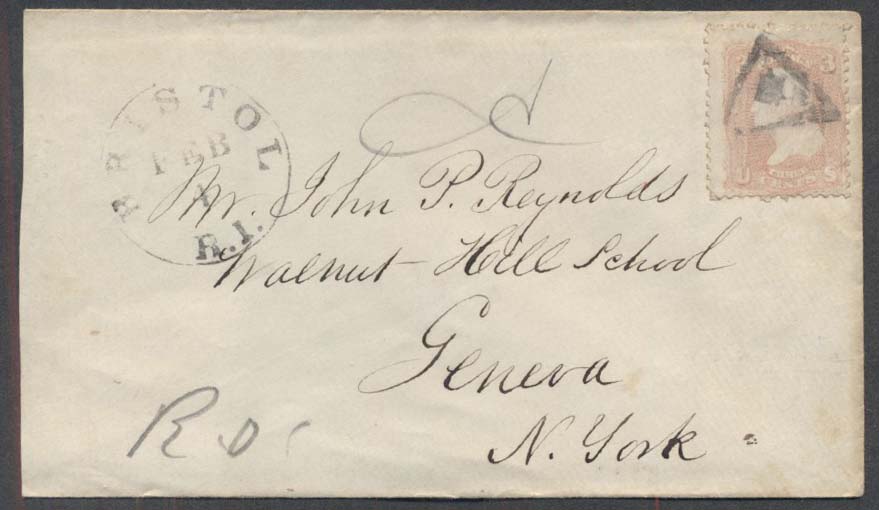 BRISTOL
FEB
1
R.I.
3
U S
Mr. John P. Reynolds
Walnut-Hill School
Geneva
N. York